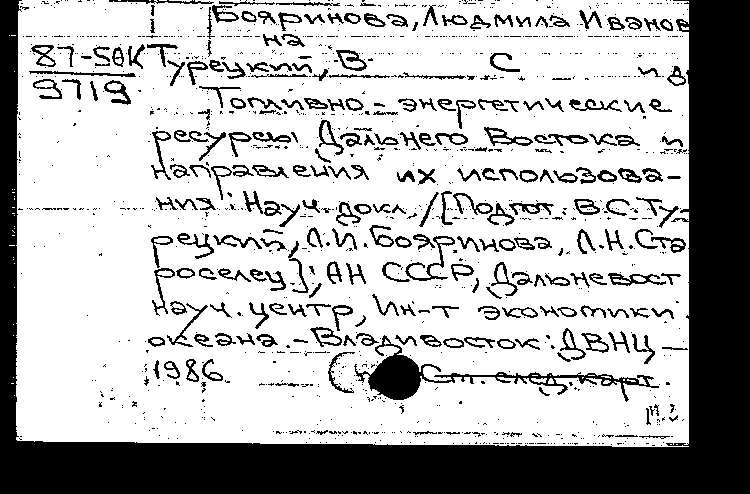 Бояринова, Людмила Иванов
на
87-5ОК Турецкий, В С и д
9719
Топливно-энергетические
ресурсы Дальнего Востока и
направления их использова-
ния: Науч. докл. /[Подгот. В.С.Ту-
рецкий, Л.И.Бояринова, Л.Н.Ста
роселец]; АН СССР, Дальневост
науч. центр, Ин-т экономики
океана. - Владивосток: ДВНЦ -
1986.
См. след. карт.